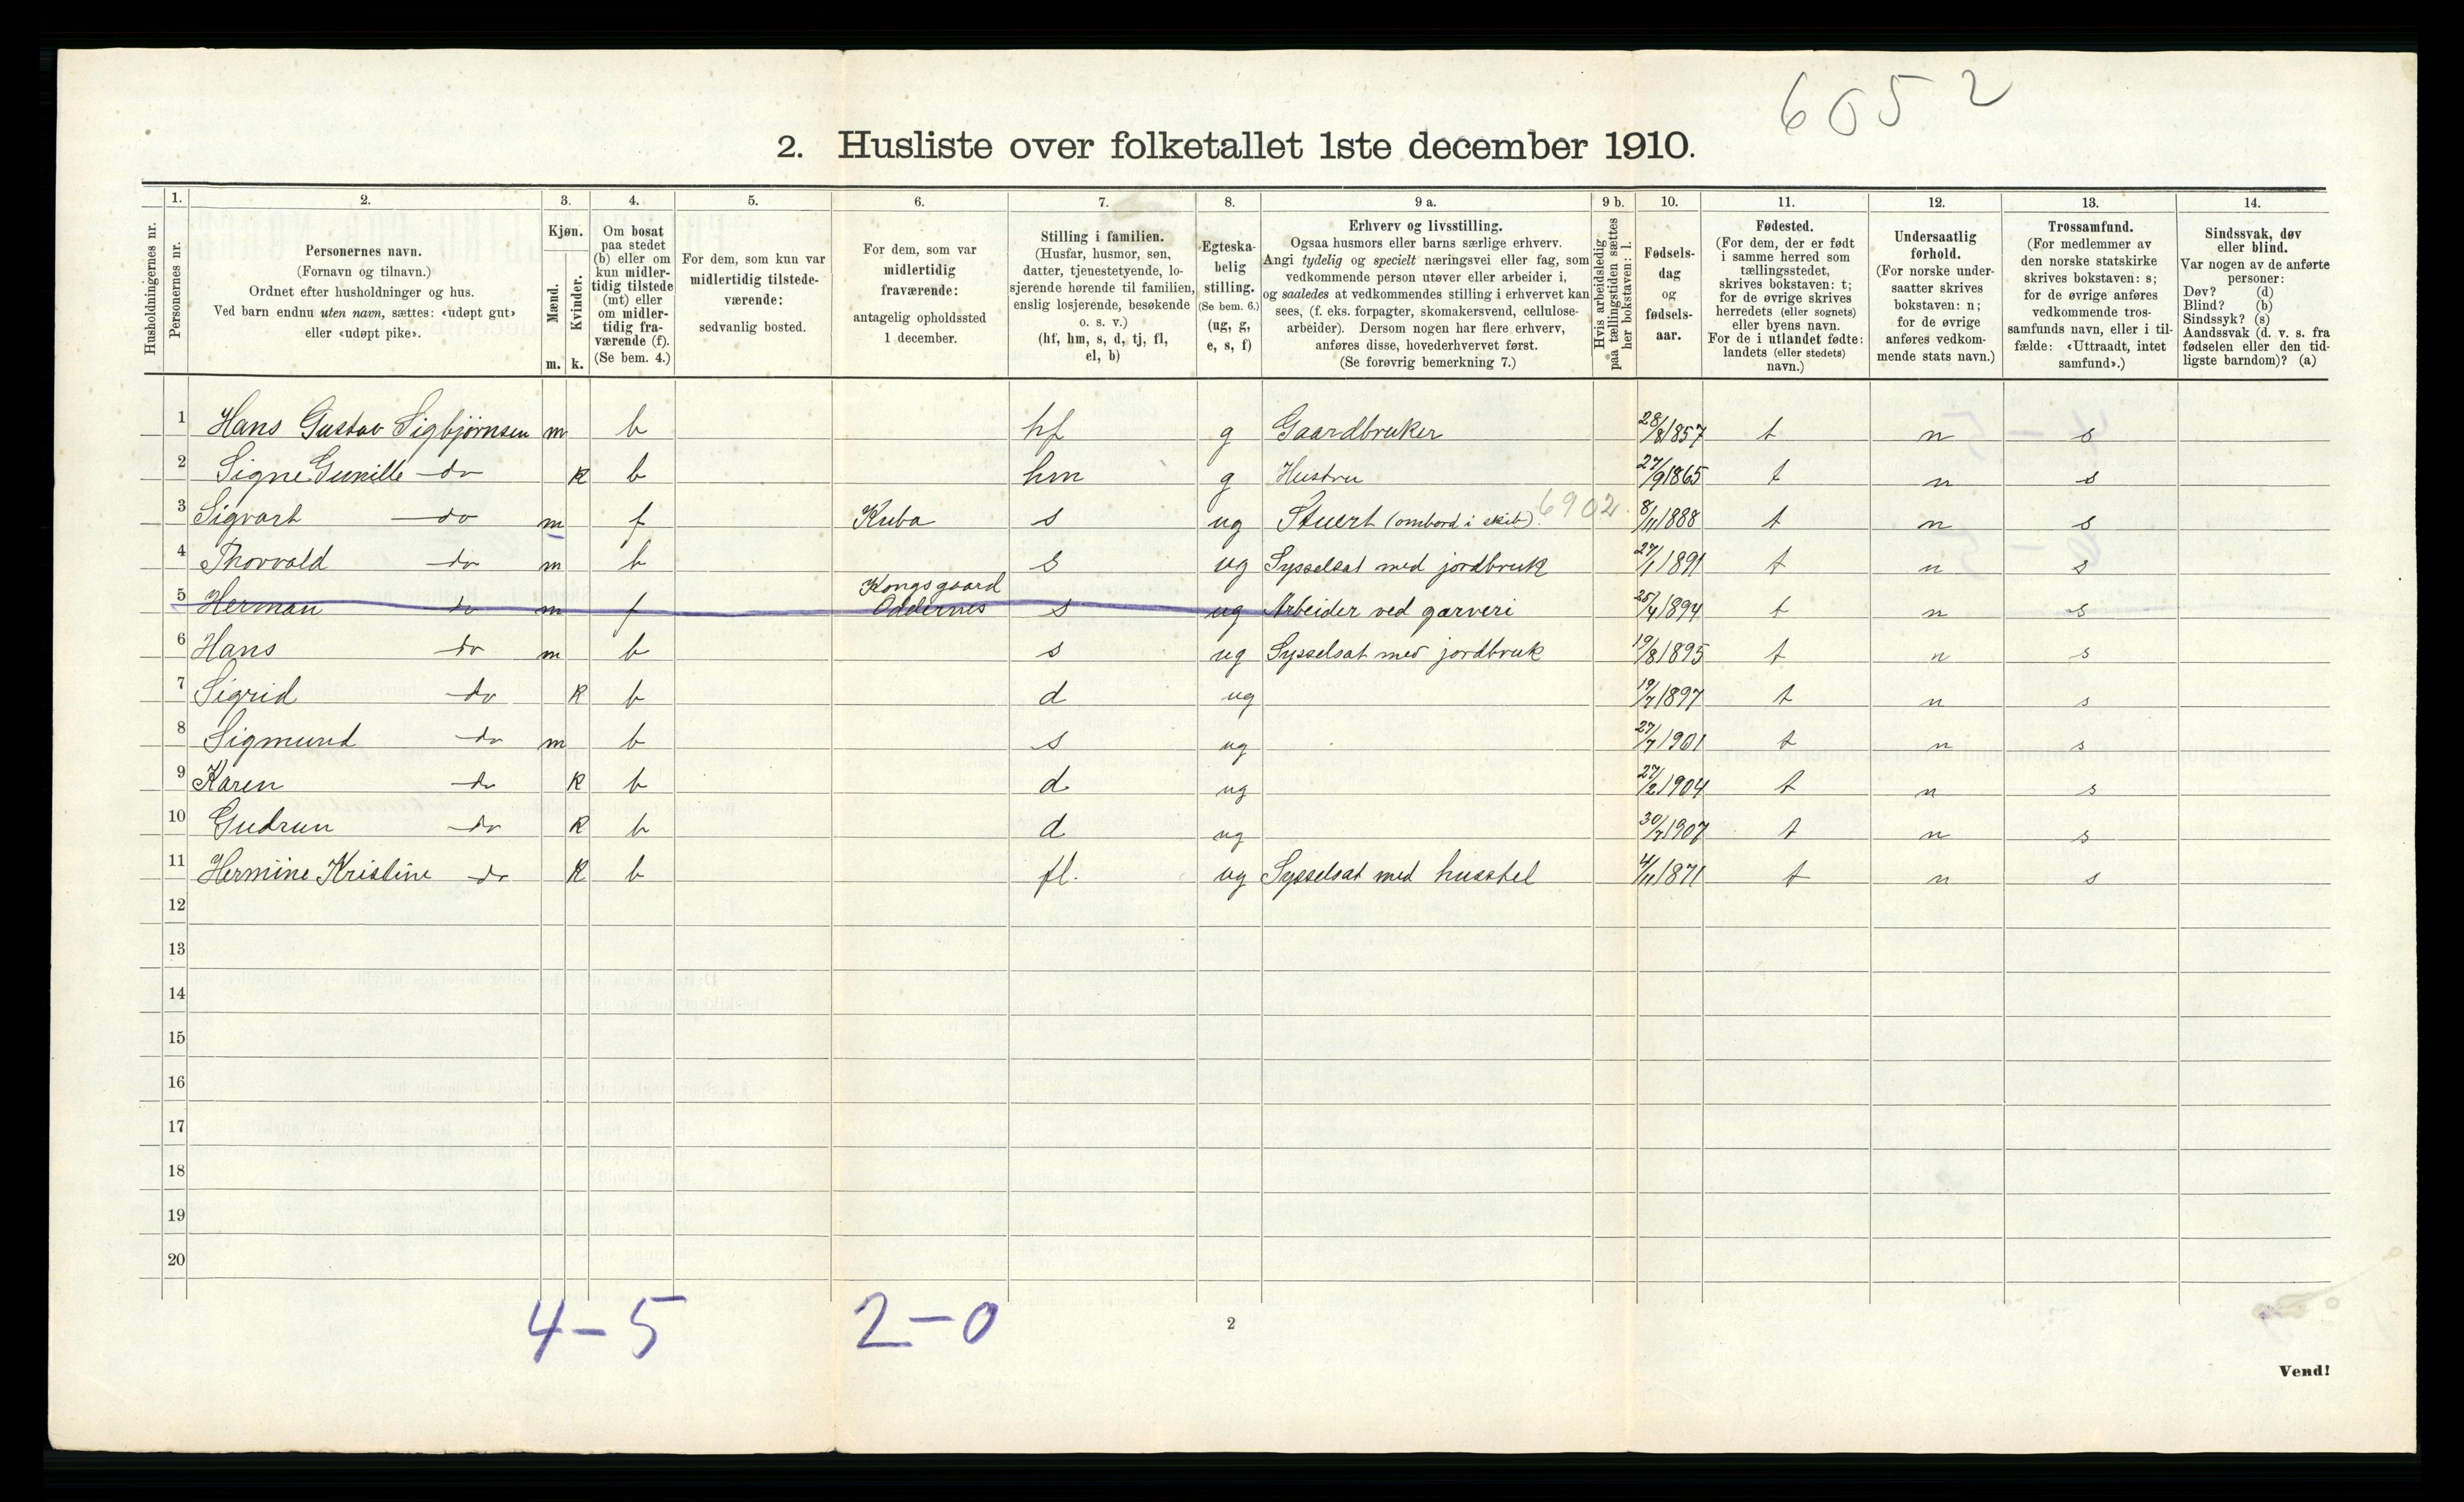 6052
2. Husliste over folketallet 1ste december 1910.
Husholdningernes nr.
1. Personernes nr.
2. Personernes navn. (Fornavn og tilnavn.) Ordnet efter husholdninger og hus. Ved barn endnu uten navn, sættes: «udøpt gut» eller «udøpt pike».
3. Kjøn. Mænd. m. Kvinder. k.
4. Om bosat paa stedet (b) eller om kun midlertidig tilstede (mt) eller om midlertidig fraværende (f). (Se bem. 4.)
5. For dem, som kun var midlertidig tilstedeværende: sedvanlig bosted.
6. For dem, som var midlertidig fraværende: antagelig opholdssted 1 december.
7. Stilling i familien. (Husfar, husmor, søn, datter, tjenestetyende, losjerende hørende til familien, enslig losjerende, besøkende o. s. v.) (hf, hm, s, d, tj, fl, el, b)
8. Egteskabelig stilling. (Se bem. 6.) (ug, g, e, s, f)
9 a. Erhverv og livsstilling. Ogsaa husmors eller barns særlige erhverv. Angi tydelig og specielt næringsvei eller fag, som vedkommende person utøver eller arbeider i, og saaledes at vedkommendes stilling i erhvervet kan sees, (f. eks. forpagter, skomakersvend, cellulosearbeider). Dersom nogen har flere erhverv, anføres disse, hovederhvervet først. (Se forøvrig bemerkning 7.)
9 b. Hvis arbeidsledig paa tællingstiden sættes her bokstaven: l.
10. Fødselsdag og fødselsaar.
11. Fødested. (For dem, der er født i samme herred som tællingsstedet, skrives bokstaven: t; for de øvrige skrives herredets (eller sognets) eller byens navn. For de i utlandet fødte: landets (eller stedets) navn.)
12. Undersaatlig forhold. (For norske undersaatter skrives bokstaven: n; for de øvrige anføres vedkommende stats navn.)
13. Trossamfund. (For medlemmer av den norske statskirke skrives bokstaven: s; for de øvrige anføres vedkommende trossamfunds navn, eller i tilfælde: «Uttraadt, intet samfund».)
14. Sindssvak, døv eller blind. Var nogen av de anførte personer: Døv? (d) Blind? (b) Sindssyk? (s) Aandssvak (d. v. s. fra fødselen eller den tidligste barndom)? (a)
1 Hans Gustav Sigbjørnsen m b hf g Gaardbruker 28/8 1857 t n s
2 Signe Gunille do k b hm g Hustru 27/9 1865 t n s
3 Sigvart do m f Kuba s ug Stuert (ombord i skib). 6902 8/11 1888 t n s
4 Thorvald do m b s ug Sysselsat med jordbruk 27/1 1891 t n s
5 Herman do m f Kongsgaard Oddernes s ug Arbeider ved garveri 25/4 1894 t n s
6 Hans do m b s ug Sysselsat med jordbruk 19/8 1895 t n s
7 Sigrid do k b d ug 19/7 1897 t n s
8 Sigmund do m b s ug 27/7 1901 t n s
9 Karen do k b d ug 27/2 1904 t n s
10 Gudrun do k b d ug 30/7 1907 t n s
11 Hermine Kristine do k b fl. ug Sysselsat med husstel 4/11 1871 t n s
12
13
14
15
16
17
18
19
20
4-5 2-0
2
Vend!